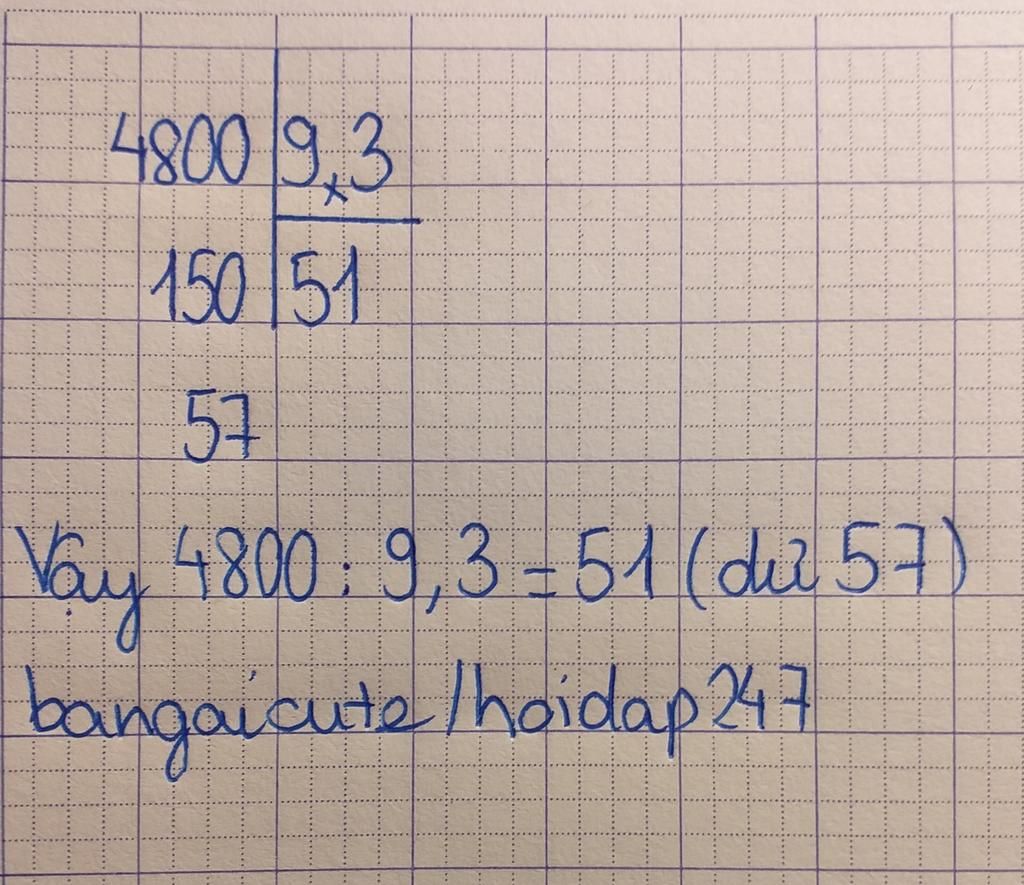 4800 9,3
150 51
57
Vậy 4800 : 9,3 = 51 (dư 57)
bangaicute/hoidap247